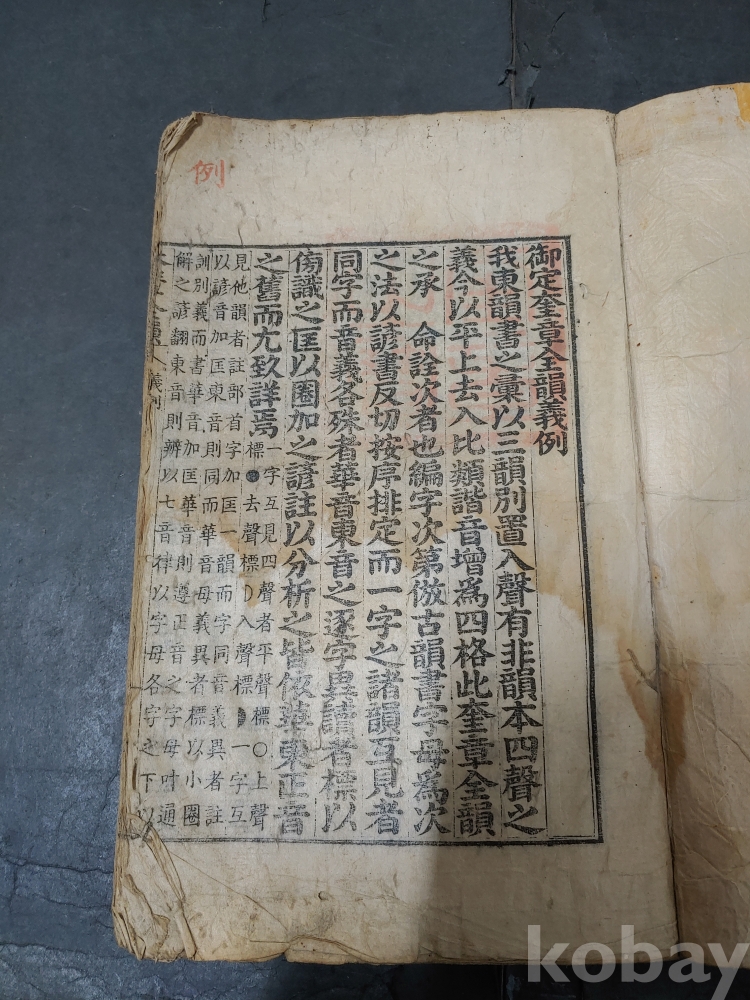 例
御定奎章全韻義例
我東韻書之彙以三韻別置入聲有非韻本四聲之
義今以平上去入比類諧音增爲四格此奎章全韻
之承　命詮次者也編字次第倣古韻書字母爲次
之法以諺書反切按序排定而一字之諸韻互見者
同字而音義各殊者華音東音之逐字異讀者標以
傍識之匡以圈加之諺註以分析之皆倣華東正音
之舊而尤致詳焉
一字互見四聲者平聲標〇上聲
標去聲標入聲標一字互
見他韻者註部首字加匡一韻而字同音義異者註
以諺音加匡東音則同而華音母義異者標以小圈
訓別義而書華音加匡華音則遵正音之字母吋通
解之諺翻東音則辨以七音律以字母各字之下以
全韻 義例
kobay